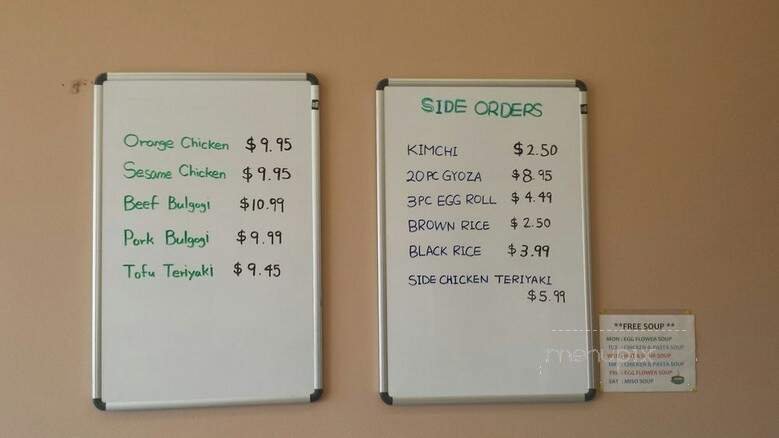 Orange Chicken $9.95
Sesame Chicken $9.95
Beef Bulgogi $10.99
Pork Bulgogi $9.99
Tofu Teriyaki $9.45
SIDE ORDERS
KIMCHI $2.50
20PC GYOZA $8.95
3PC EGG ROLL $4.49
BROWN RICE $2.50
BLACK RICE $3.99
SIDE CHICKEN TERIYAKI
$5.99
**FREE SOUP**
MON : EGG FLOWER SOUP
CHICKEN & PASTA SOUP
SOUP
CHICKEN & PASTA SOUP
FRI : EGG FLOWER SOUP
SAT : MISO SOUP
menupix